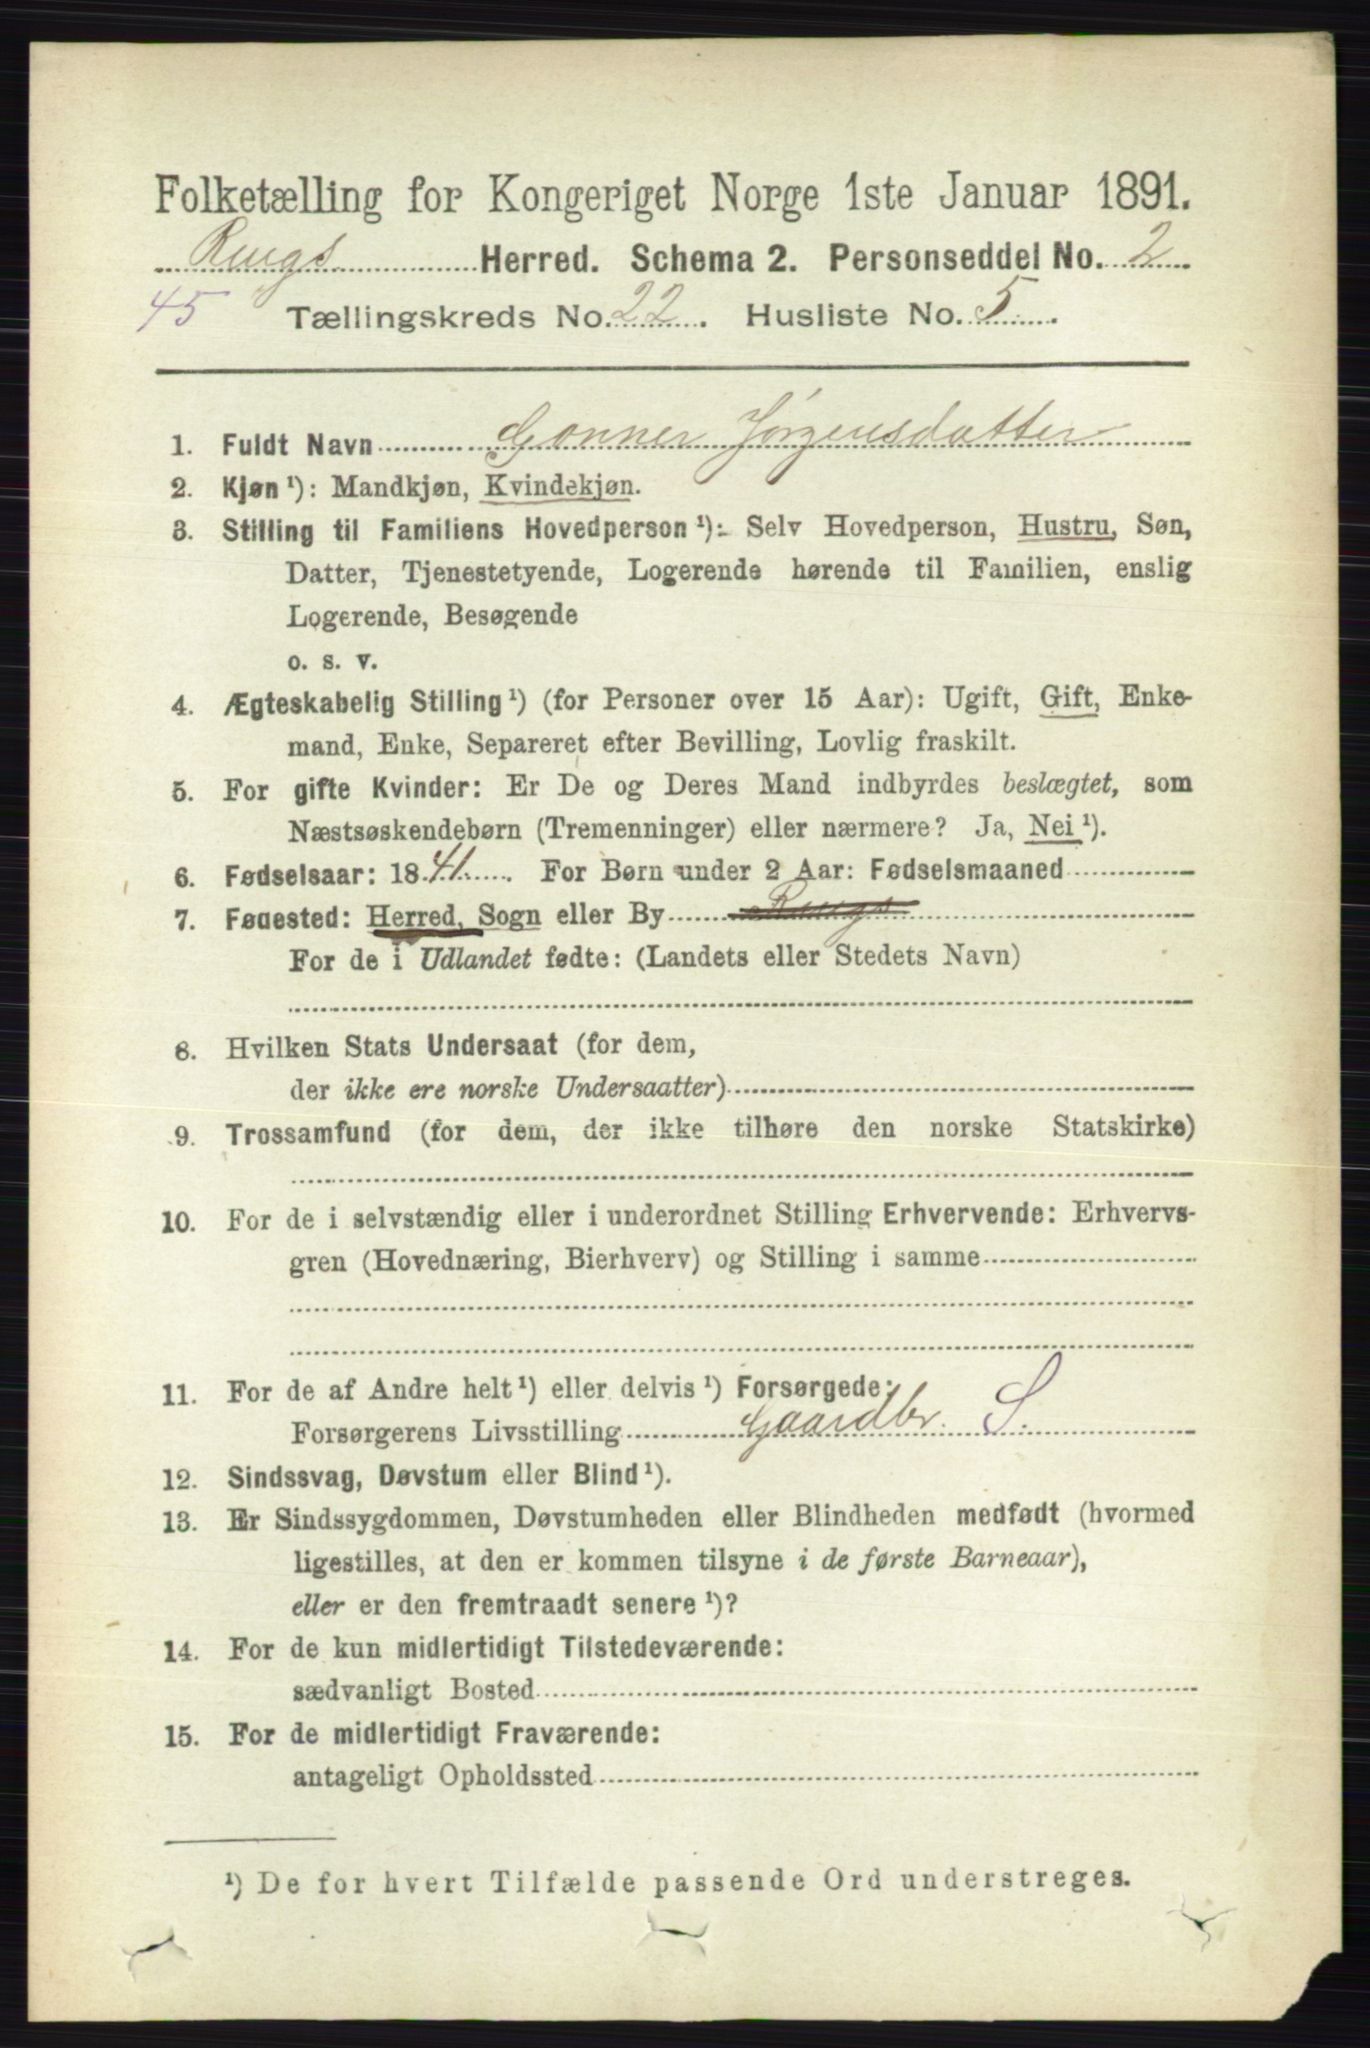 Folketælling for Kongeriget Norge 1ste Januar 1891.
Rings Herred. Schema 2. Personseddel No. 2
45 Tællingskreds No. 22. Husliste No. 5.
1. Fuldt Navn Gonner Jørgensdatter
2. Kjøn ¹): Mandkjøn, Kvindekjøn.
3. Stilling til Familiens Hovedperson ¹): Selv Hovedperson, Hustru, Søn,
Datter, Tjenestetyende, Logerende hørende til Familien, enslig
Logerende, Besøgende
o. s. v.
4. Ægteskabelig Stilling ¹) (for Personer over 15 Aar): Ugift, Gift, Enke-
mand, Enke, Separeret efter Bevilling, Lovlig fraskilt.
5. For gifte Kvinder: Er De og Deres Mand indbyrdes beslægtet, som
Næstsøskendebørn (Tremenninger) eller nærmere? Ja, Nei ¹).
6. Fødselsaar: 1841. For Børn under 2 Aar: Fødselsmaaned
7. Fødested: Herred, Sogn eller By Rings
For de i Udlandet fødte: (Landets eller Stedets Navn)
8. Hvilken Stats Undersaat (for dem,
der ikke ere norske Undersaatter)
9. Trossamfund (for dem, der ikke tilhøre den norske Statskirke)
10. For de i selvstændig eller i underordnet Stilling Erhvervende: Erhvervs-
gren (Hovednæring, Bierhverv) og Stilling i samme
11. For de af Andre helt ¹) eller delvis ¹) Forsørgede:
Forsørgerens Livsstilling Gaardbr. S.
12. Sindssvag, Døvstum eller Blind ¹).
13. Er Sindssygdommen, Døvstumheden eller Blindheden medfødt (hvormed
ligestilles, at den er kommen tilsyne i de første Barneaar),
eller er den fremtraadt senere ¹)?
14. For de kun midlertidigt Tilstedeværende:
sædvanligt Bosted
15. For de midlertidigt Fraværende:
antageligt Opholdssted
¹) De for hvert Tilfælde passende Ord understreges.